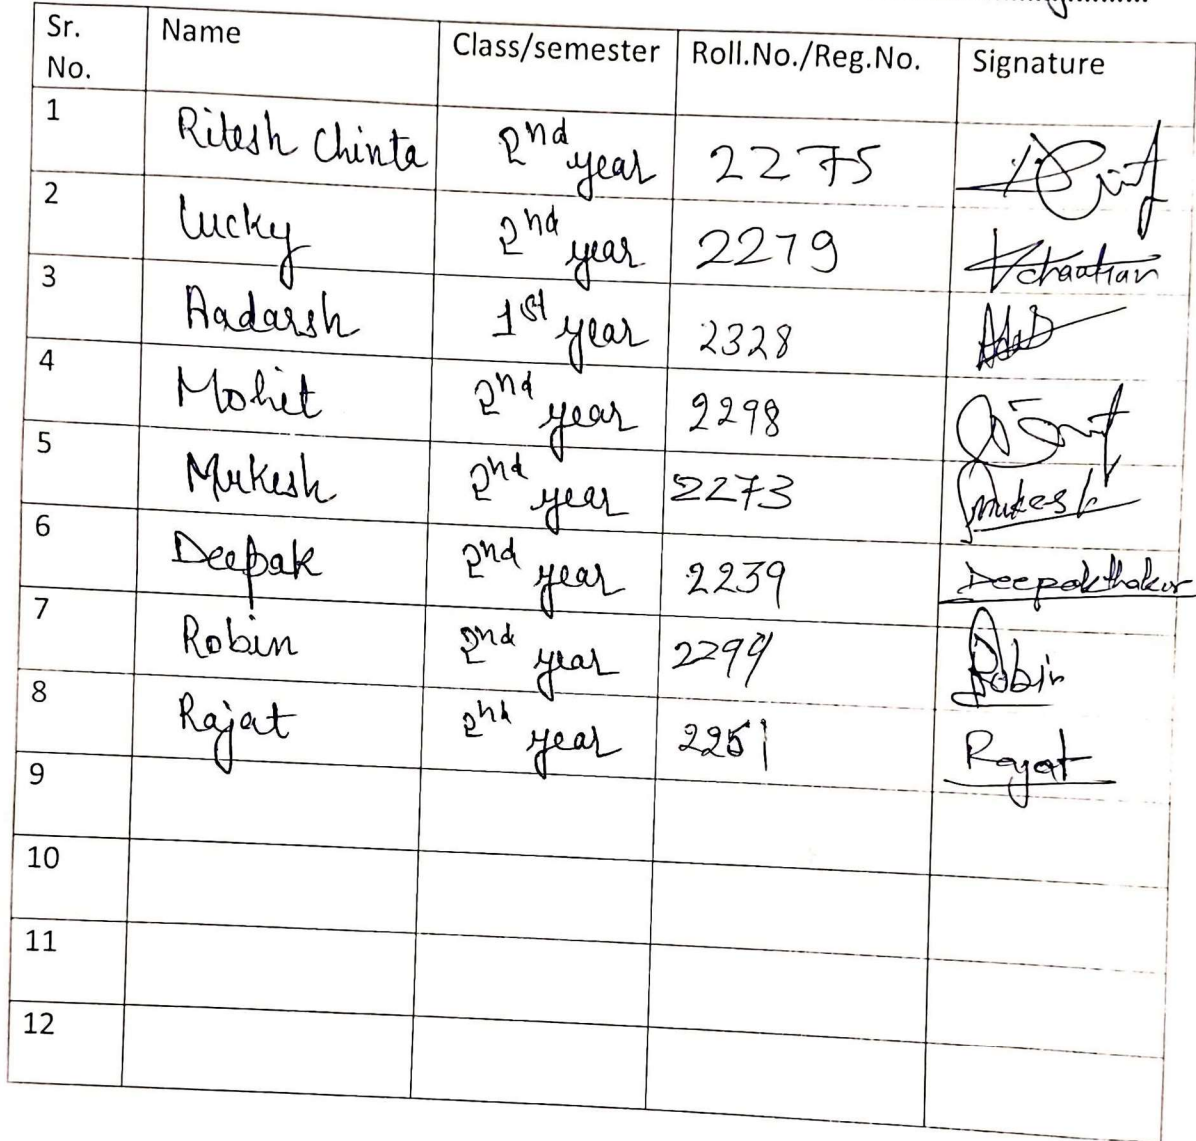 Sr. No. Name Class/semester Roll.No./Reg.No. Signature
1 Ritesh Chinta 2nd year 2275
2 Lucky 2nd year 2279
3 Aadarsh 1st year 2328
4 Mohit 2nd year 2298
5 Mukesh 2nd year 2273 Mukesh
6 Deepak 2nd year 2239 Deepakthakur
7 Robin 2nd year 2294 Robin
8 Rajat 2nd year 2251 Rajat
9
10
11
12